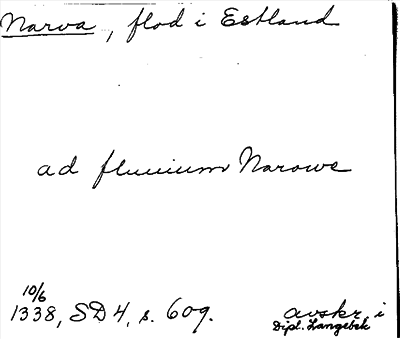 Narva, flod i Estland
ad fluuium Narowe
10/6
1338, SD 4, s. 609.
avskr. i
Dipl. Langebek